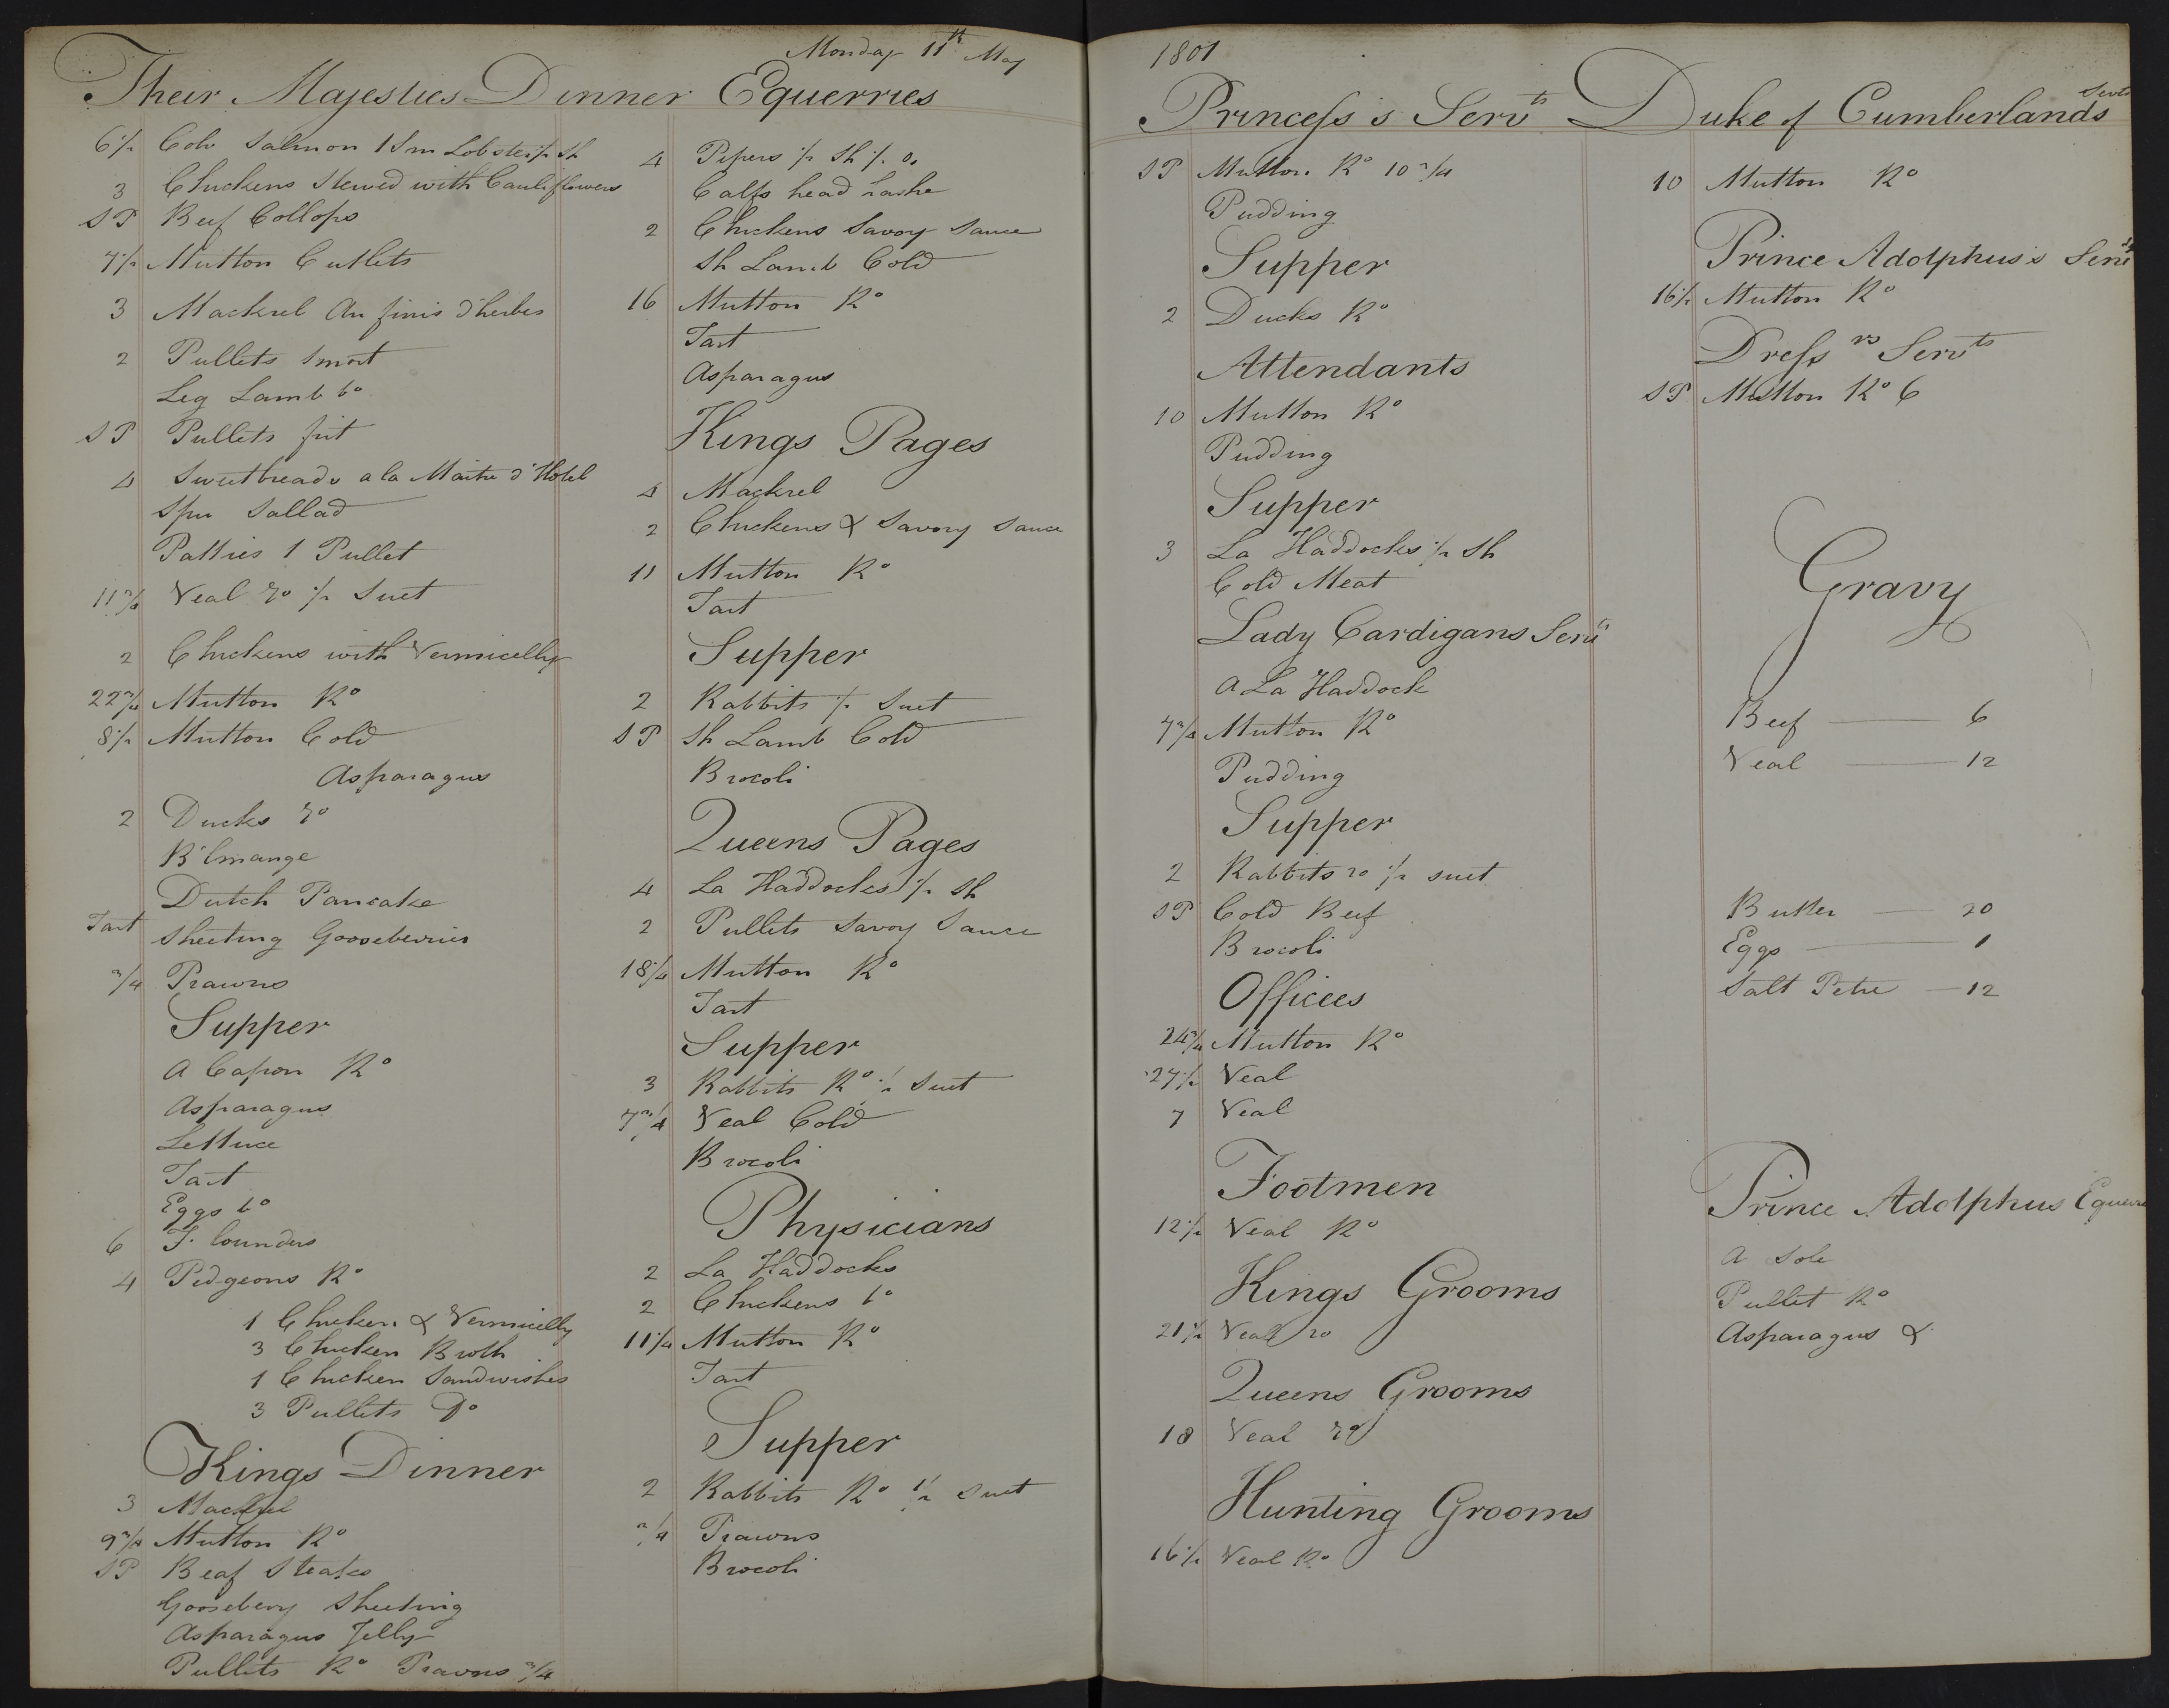 Monday 11th May
Their Majesties Dinner
6½ Cold Salmon 1 Sm Lobster ½ Sh
3 Chickens Stewed with Cauliflowers
SP Beef Collops
7½ Mutton Cutlets
3 Mackrel Au finis d'herbes
2 Pullets
Leg Lamb bo
SP Pullets frit
4 Sweetbreads a la Maitre d'Hotel
Sallad
Patties 1 Pullet
11¾ Veal Ro ½ Suet
2 Chickens with Vermicelly
22¾ Mutton Ro
8½ Mutton Cold
Asparagus
2 Ducks Ro
B'lmange
Dutch Pancake
Tart Sheeting Gooseberries
¾ Prawns
Supper
A Capon Ro
Asparagus
Lettuce
Tart
Eggs bo
6 F. lounders
4 Pidgeons Ro
1 Chicken & Vermicelly
3 Chicken Broth
1 Chicken Sandwishes
3 Pullets Do
Kings Dinner
3 Mackrel
9¾ Mutton Ro
SP Beaf Steaks
Gooseberry Sheeting
Asparagus Jelly
Pullets Ro Prawns ¾
Equerries
4 Pipers ½ Sh
Calfs head hashe
2 Chickens Savoy Sauce
Sh Lamb Cold
16 Mutton Ro
Tart
Asparagus
Kings Pages
4 Mackrel
2 Chickens & Savory Sauce
11 Mutton Ro
Tart
Supper
2 Rabbits ½ Suet
SP Sh Lamb Cold
Brocoli
Queens Pages
4 La Haddocks ½ Sh
2 Pullets Savoy Sauce
18¼ Mutton Ro
Tart
Supper
3 Rabbits Ro ½ Suet
7¾ Veal Cold
Brocoli
Physicians
2 La Haddocks
2 Chickens bo
11¼ Mutton Ro
Tart
Supper
2 Rabbits Ro ½ Suet
¾ Prawns
Brocoli
1801
Princess's Servts
SP Mutton Ro 10¾
Pudding
Supper
2 Ducks Ro
Attendants
10 Mutton Ro
Pudding
Supper
3 La Haddocks ½ Sh
Cold Meat
Lady Cardigans Servts
A La Haddock
7¾ Mutton Ro
Pudding
Supper
2 Rabbits ro ½ suet
SP Cold Beef
Brocoli
Offices
24¾ Mutton Ro
27½ Veal
7 Veal
Footmen
12½ Veal Ro
Kings Grooms
21½ Veal ro
Queens Grooms
18 Veal Ro
Hunting Grooms
16½ Veal Ro
Duke of Cumberlands Servts
10 Mutton Ro
Prince Adolphus's Servts
16½ Mutton Ro
Dressrs Servts
SP Mutton Ro 6
Gravy
Beef 6
Veal 12
Butter 20
Eggs 1
Salt Petre 12
Prince Adolphus Equerre
A Sole
Pullet Ro
Asparagus &